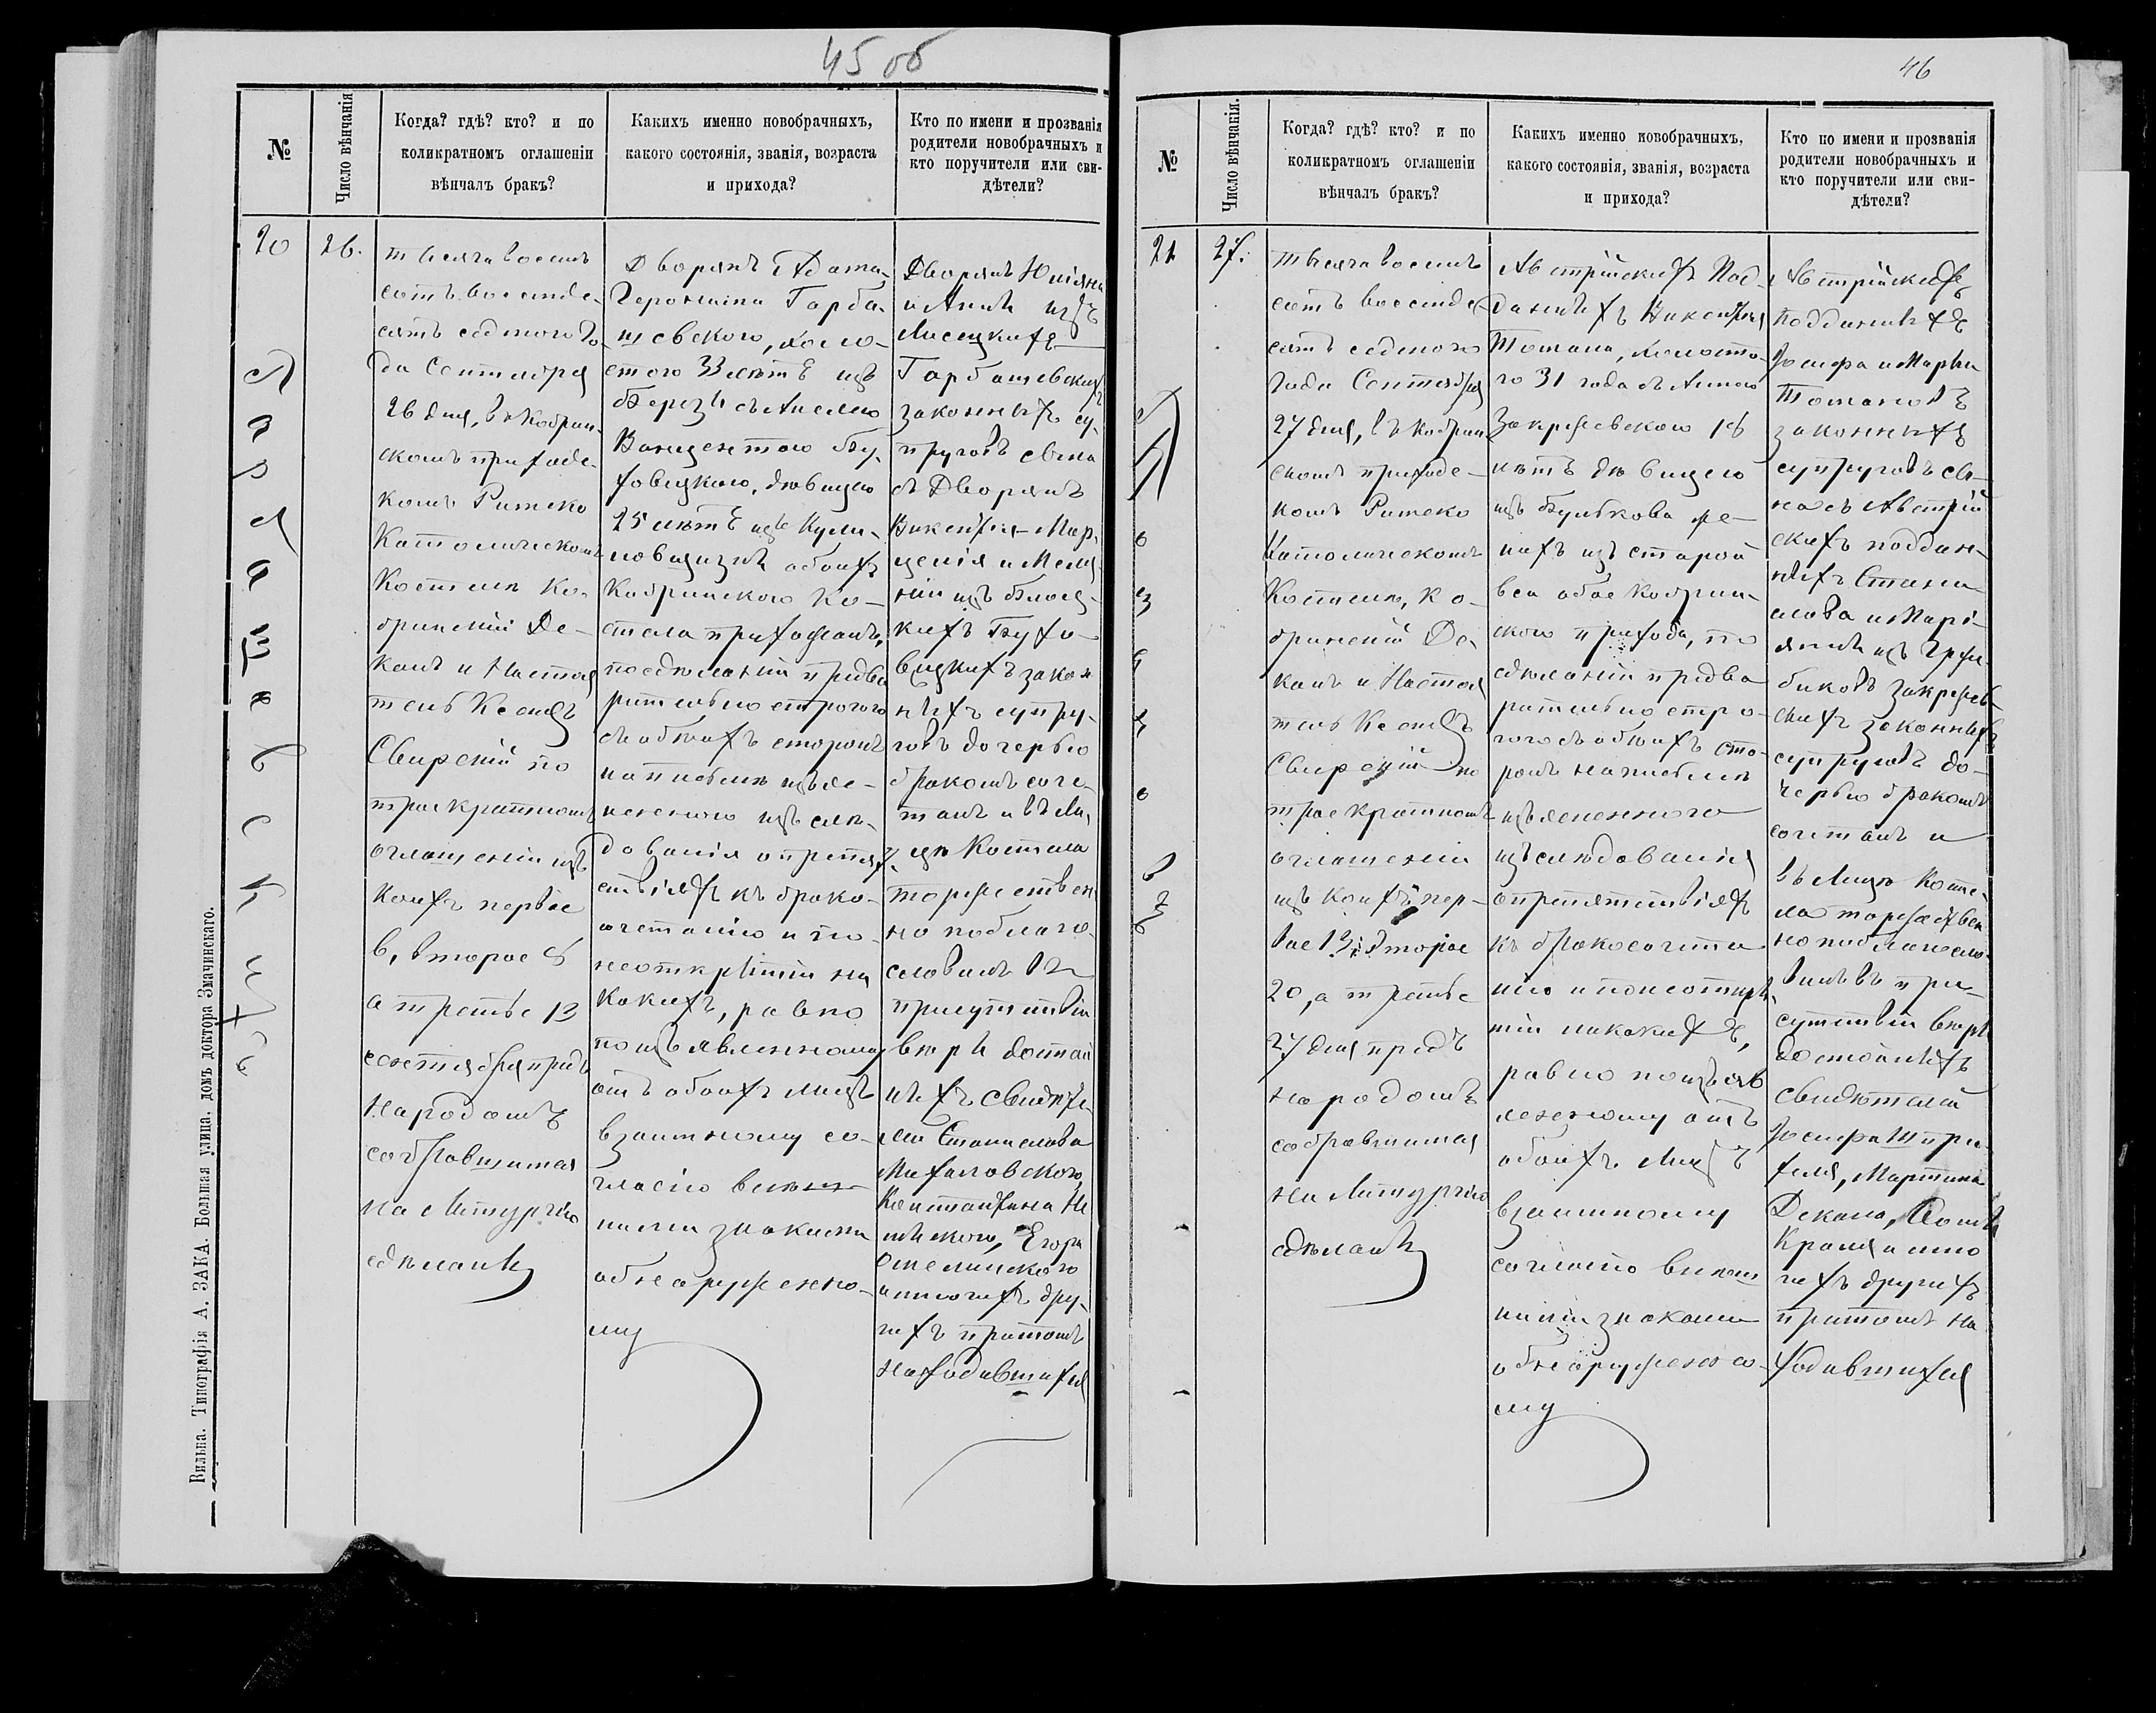 45 об
№
Число вѣнчанія
Когда? гдѣ? кто? и по
коликратномъ оглашеніи
вѣнчалъ бракъ?
Какихъ именно новобрачныхъ,
какого состоянія, званія, возраста
и прихода?
Кто по имени и прозванія
родители новобрачныхъ и
кто поручители или сви-
дѣтели?
20
26.
тысяча восемь
сотъ восемьде-
сятъ седмого го-
да Сентября
26 дня, въ Кобрин-
скомъ приходс-
комъ Римско
Католическомъ
Костелѣ Ко-
бринскій Де-
канъ и Настоя
тель Ксендзъ
Свирскій по
троекратномъ
оглашеніи изъ
коихъ первое
6, второе 8
а третье 13
сентября предъ
народомъ
собравшимся
на Литургію
сдѣланы
Дворянъ Адама-
Геронима Гарба-
шевского, холо-
стого 33 лѣтъ изъ
Березы съ Анелею
Винцентою Бу-
ховецкою, дѣвицею
25 лѣтъ изъ Кули-
новщизны обоихъ
Кобринского Ко-
стела прихожанъ,
по сдѣланіи предва
рительно строгого
съ обоихъ сторонъ
на письмѣ изъяс-
неннаго изслѣ-
дованія о препят
ствіяхъ къ брако-
сочетанію и по
неоткрытіи ни
какихъ, равно
по изъявленному
отъ обоихъ лицъ
взаимному со-
гласію внѣш-
ними знаками
обнаруженно-
му
Дворянъ Юліяна
и Анны изъ
Лисецкихъ
Гарбашевскихъ
законныхъ су-
пруговъ сына
съ Дворянъ
Викентія-Мар-
целія и Мела
ніи изъ
Бухо-
вецкихъ закон
ныхъ супру-
говъ дочерью
бракомъ соче-
талъ и въ Ли-
цѣ Костела
торжествен
но поблаго-
словилъ въ
присутствіи
вѣры достой
ныхъ свидѣте-
лей Станислава
Михаловского,
Константина
Егора
и многихъ дру-
гихъ притомъ
находившихся
Гарбашевскихъ
Вильна. Типографія А. ЗАКА. Большая улица, домъ доктора Змачинскаго.
46
№
Число вѣнчанія.
Когда? гдѣ? кто? и по
коликратномъ оглашеніи
вѣнчалъ бракъ?
Какихъ именно новобрачныхъ,
какого состоянія, званія, возраста
и прихода?
Кто по имени и прозванія
родители новобрачныхъ и
кто поручители или сви-
дѣтели?
21
27.
тысяча восемь
сотъ восемьде
сятъ седмого
года Сентября
27 дня, въ Кобрин
скомъ приходс-
комъ Римско
Католическомъ
Костелѣ, Ко-
бринскій Де-
канъ и Настоя
тель Ксендзъ
Свирскій по
троекратномъ
оглашеніи
изъ коихъ пер-
вое 13, второе
20, а третье
27 дня предъ
народомъ
собравшимся
на Литургію
сдѣланы
Австрійскихъ Под-
данныхъ Викентія
Томана, холосто-
го 31 года съ Анною
Закржевскою 18
лѣтъ дѣвицею
изъ Булькова
изъ старой
вси обое Кобрин-
ского прихода, по
сдѣланіи предва
рительно стро-
гого съ обоихъ сто-
ронъ на письмѣ
изъясненного
изслѣдованія
о препятствіяхъ
къ бракосочета
нію и по неоткры
тіи никакихъ,
равно по изъяв
ленному отъ
обоихъ лицъ
взаимному
согласію внѣш
ними знаками
обнаруженно-
му
Австрійскихъ
подданныхъ
Іосифа и Маріи
Томановъ
законныхъ
супруговъ сы-
на съ Австрій
скихъ поддан-
ныхъ Стани
слава и Марі-
янны изъ
Закржев-
скихъ законныхъ
супруговъ до-
черью бракомъ
сочеталъ и
въ Лицѣ Косте-
ла торжествен
но поблагосло-
вилъ въ при-
сутствіи вѣры
достойныхъ
свидѣтелей
Іосифа
Мартина
Декана,
и мно
гихъ другихъ
притомъ на
ходившихся